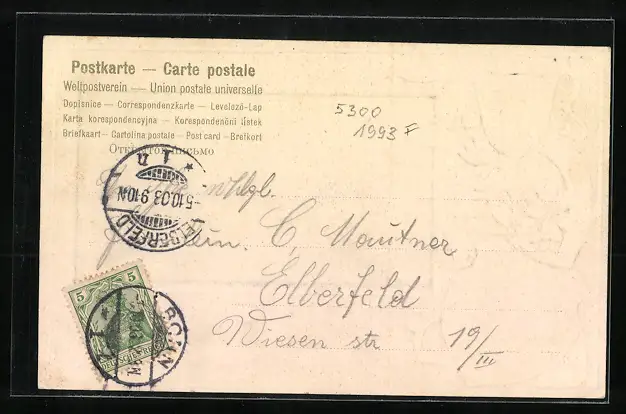 Postkarte — Carte postale
Weltpostverein — Union postale universelle
Dopisnice — Correspondenzkarte — Levelező-Lap
Karta korespondencyjna — Korespondenční lístek
Briefkaart — Cartolina postale — Post card — Brefkort
Открытое письмо
5300
1993 F
ELBERFELD
-5.10.03.9-10N.
* 1 n
Wohlgb.
Fräulein. C. Mautner
Elberfeld
Wiesen str 19/III
5
5
DEUTSCHES REICH
BONN